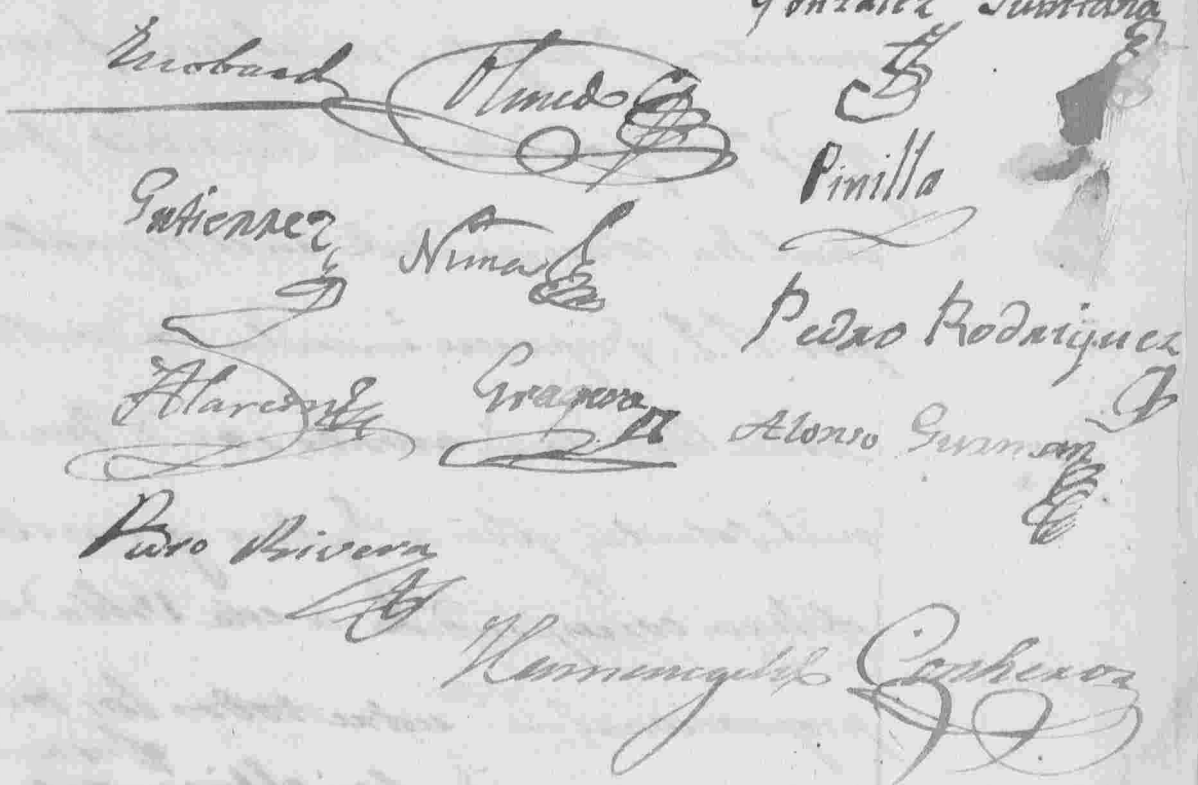 Gonzalez Quintana
Escobar Olmedo
Pinilla
Gutierrez Nuñez
Pedro Rodriguez
Alarcon Gragera Alonso Guzman
Pedro Rivera
Hermenegildo